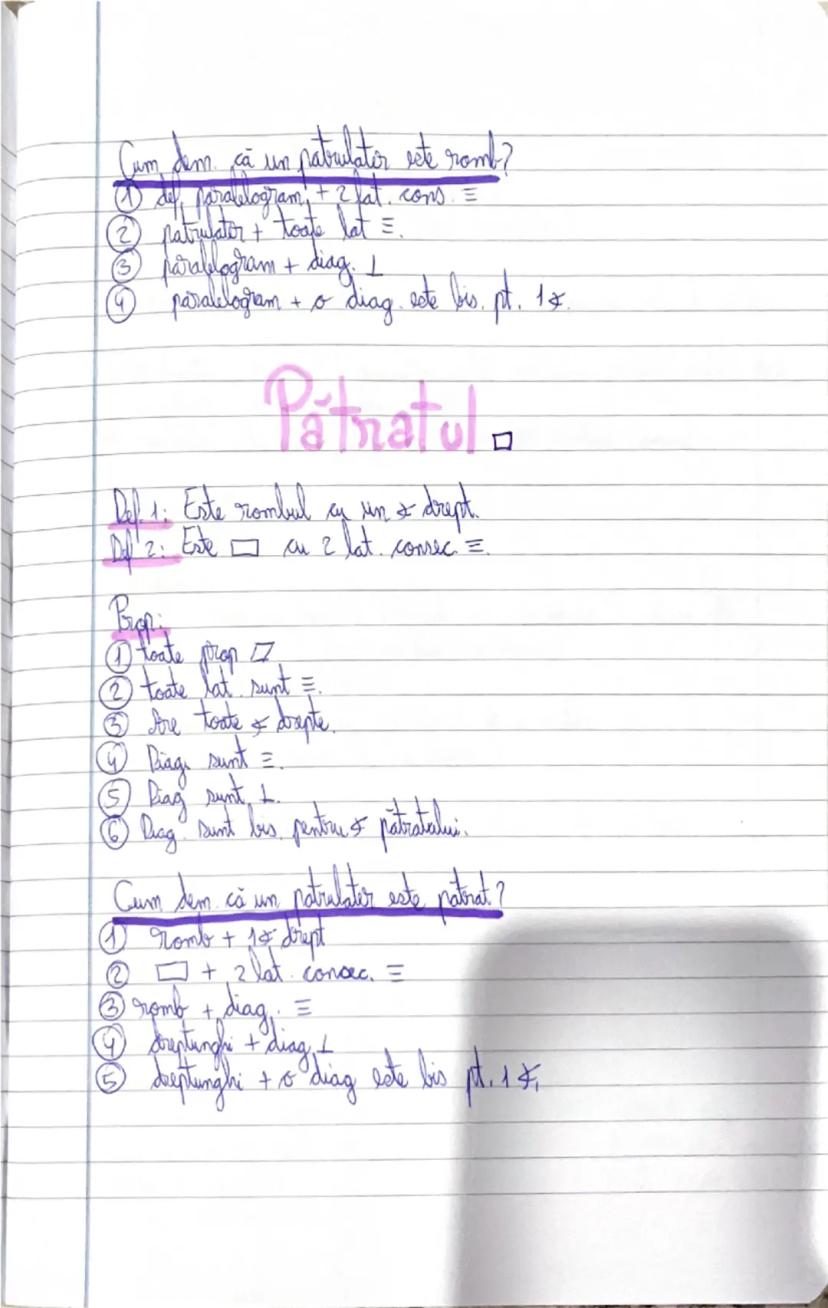 Cum dem. că un patrulater este romb?
① def. paralelogram + 2 lat. cons. ≡
② patrulater + toate lat ≡.
③ paralelogram + diag. ⊥
④ paralelogram + o diag. este bis. pt. 1∢.
Pătratul □
Def. 1: Este rombul cu un ∢ drept.
Def 2: Este ▭ cu 2 lat. consec. ≡.
Prop:
① toate prop ▱
② toate lat. sunt ≡.
③ Are toate ∢ drepte.
④ Diag. sunt ≡.
⑤ Diag sunt ⊥.
⑥ Diag. sunt bis. pentru ∢ pătratului.
Cum dem. că un patrulater este patrat?
① romb + 1∢ drept
② ▭ + 2 lat. consec. ≡
③ romb + diag. ≡
④ dreptunghi + diag ⊥
⑤ dreptunghi + o diag este bis pt. 1∢.